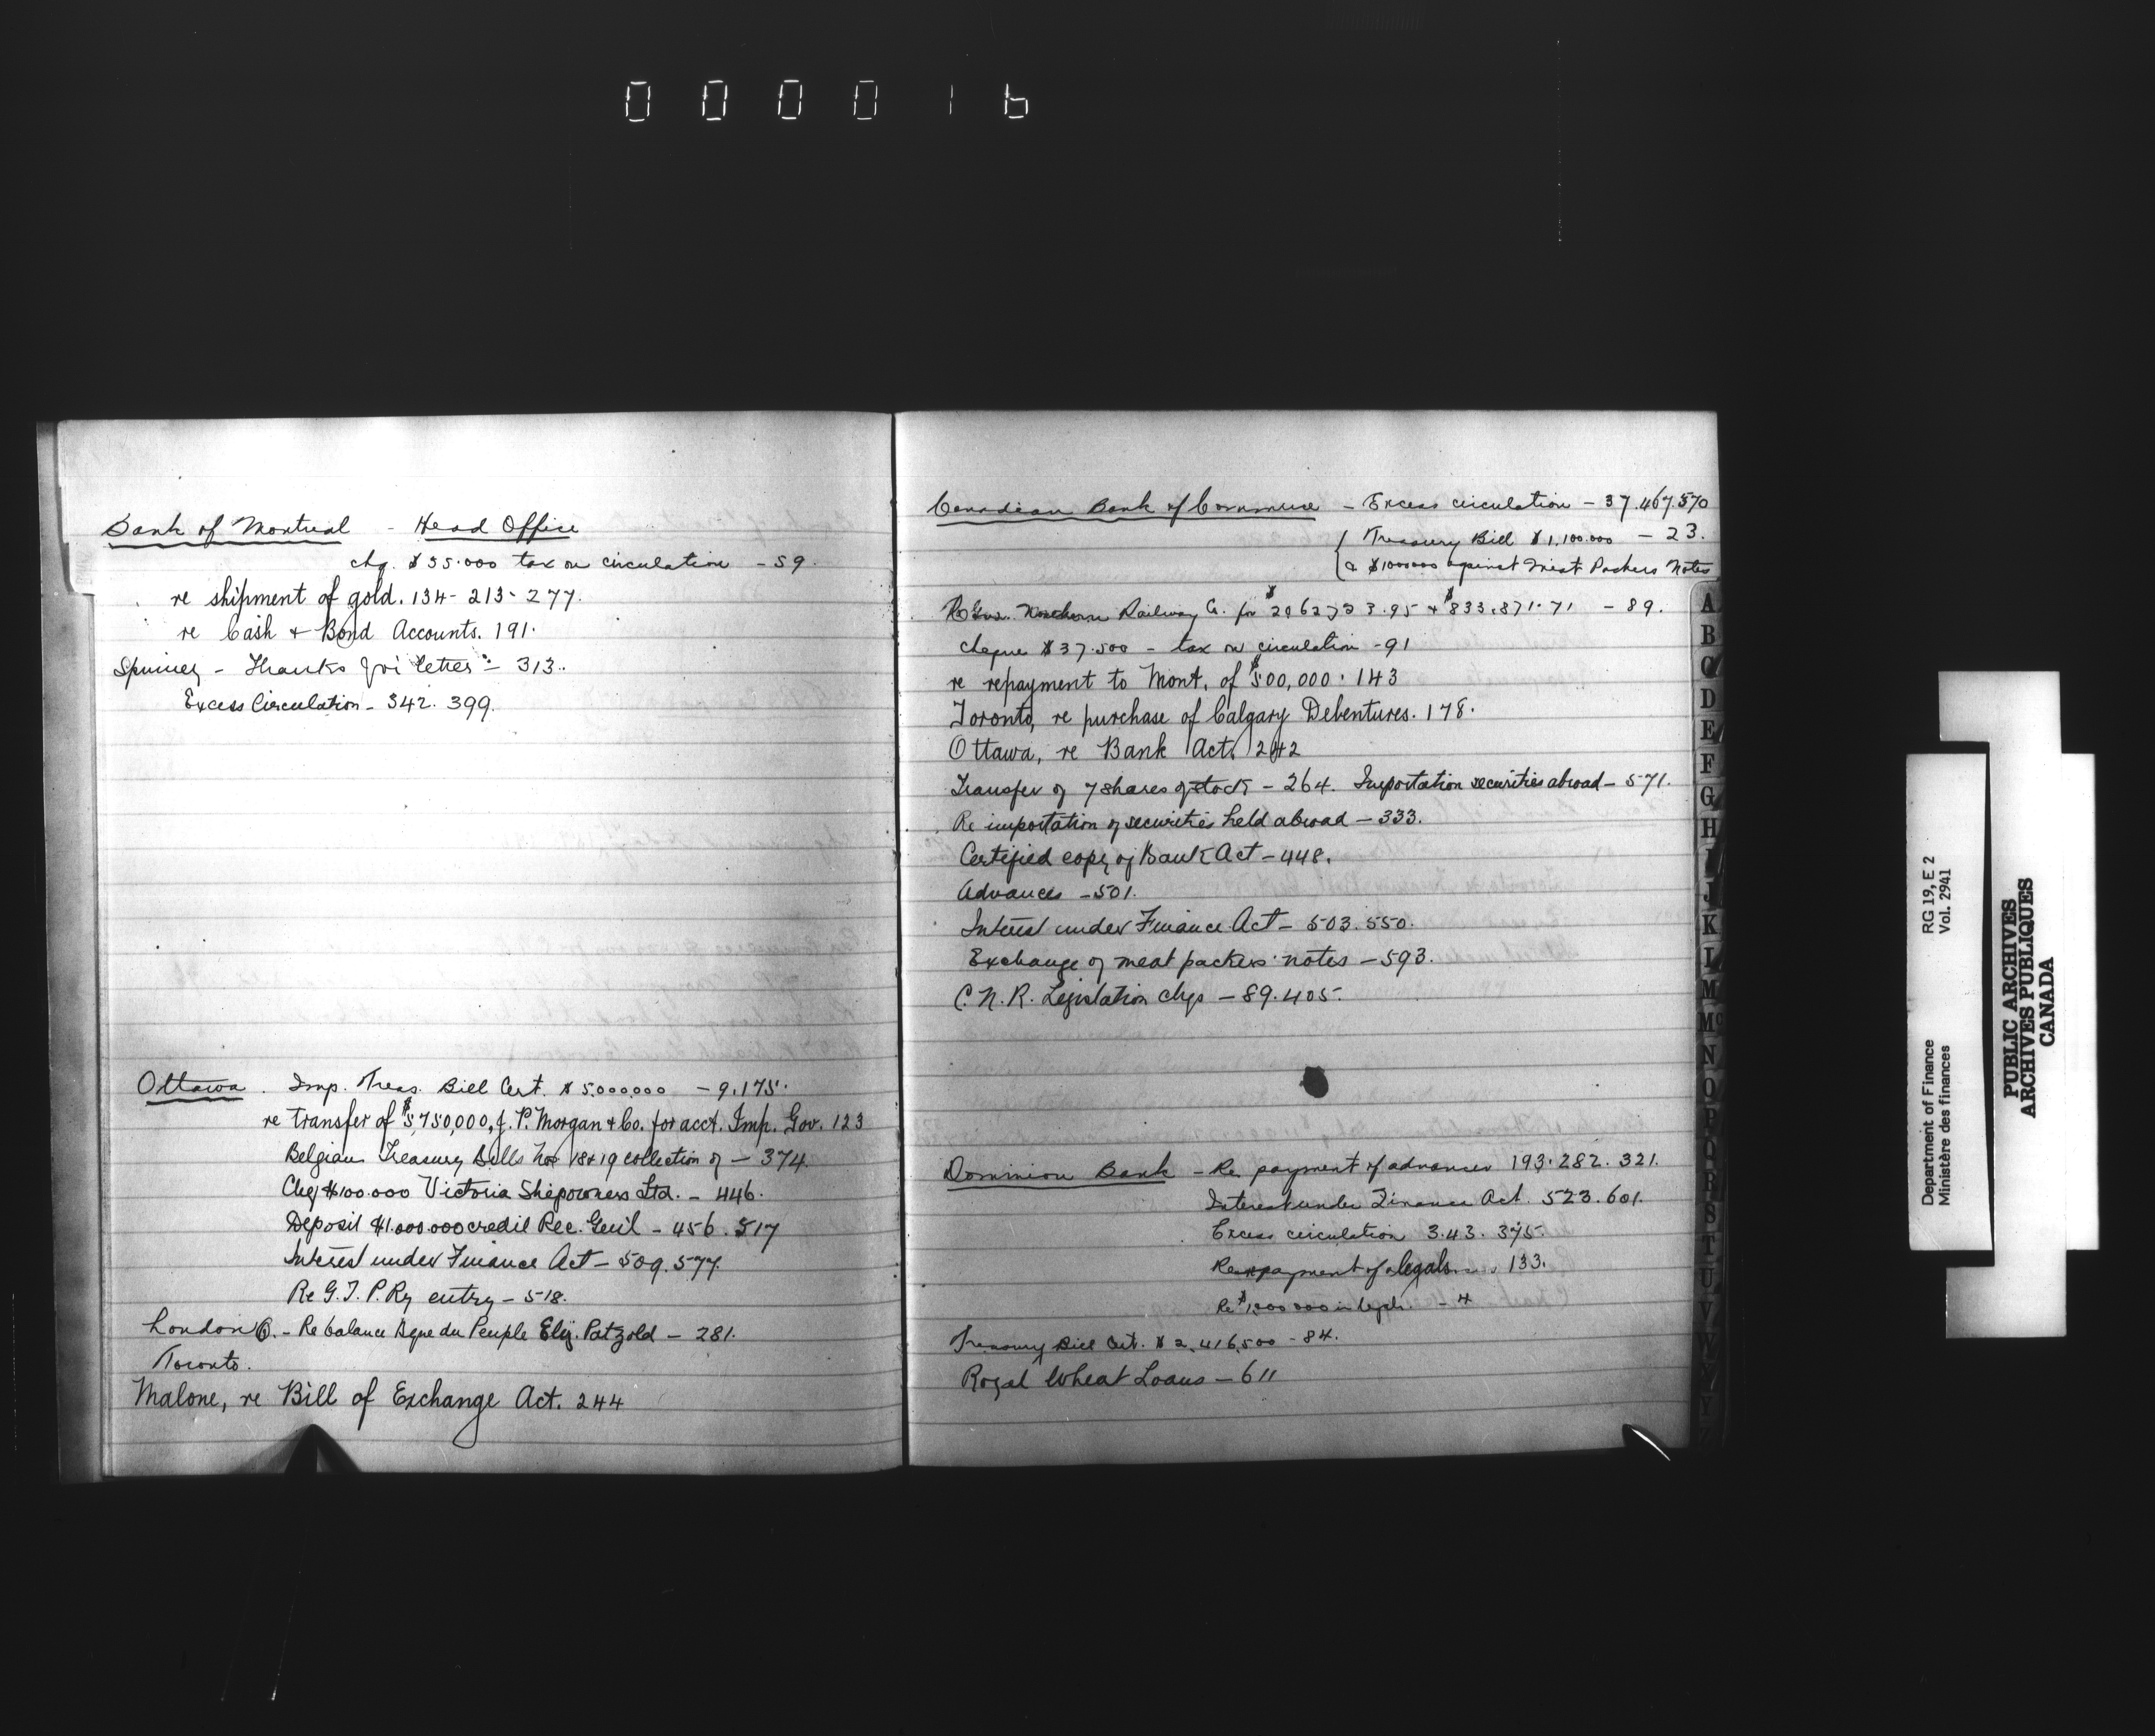 000016
Bank of Montreal - Head Office
chq. $35.000 tax on circulation - 59.
re shipment of gold. 134- 213- 277.
re Cash & Bond Accounts. 191.
- Thanks for letter - 313.
Excess Circulation - 342. 399.
Ottawa. Imp. Treas. Bill Cert. $5,000,000 - 9.175.
re transfer of $5,750,000, J. P. Morgan & Co. for acct. Imp. Gov. 123
Belgian Treasury Bills Nos 18 & 19 collection of - 374.
Chq $100.000 Victoria Shipowners Ltd. - 446.
Deposit $1.000.000 credit Rec. Gen'l - 456. 517
Interest under Finance Act - 509. 577.
Re G. T. P. Ry entry - 518.
London - Re balance Bque du Peuple Eliz. Patzold - 281.
Toronto.
Malone, re Bill of Exchange Act. 244
Canadian Bank of Commerce - Excess circulation - 37.467.570
Treasury Bill $1,100.000 - 23.
& $1000000 against Meat Packers Notes
Northern Railway Co. for & $833,871.71 - 89.
cheque $37.500 - tax on circulation - 91
re repayment to Mont. of $500,000. 143
Toronto, re purchase of Calgary Debentures. 178.
Ottawa, re Bank Act. 242
Transfer of 7 shares of stock - 264. Importation securities abroad - 571.
Re importation of securities held abroad - 333.
Certified copy of Bank Act - 448.
Advances - 501.
Interest under Finance Act - 503. 550.
Exchange of meat packers' notes - 593.
C. N. R. Legislation chqs - 89. 405.
Dominion Bank - Re payment of advances 193. 282. 321.
Interest under Finance Act. 523. 601.
Excess circulation 343. 375.
Re payment of legals 133.
Re $1,000 000 in legals. - 4
Treasury Bill Cert. $2,416,500 - 84.
Royal Wheat Loans - 611
A
B
C
D
E
F
G
H
I
J
K
L
M
Mc
N
O
P
Q
R
S
T
U
V
W
Y
Department of Finance
Ministère des finances
RG 19, E 2
Vol. 2941
PUBLIC ARCHIVES
ARCHIVES PUBLIQUES
CANADA